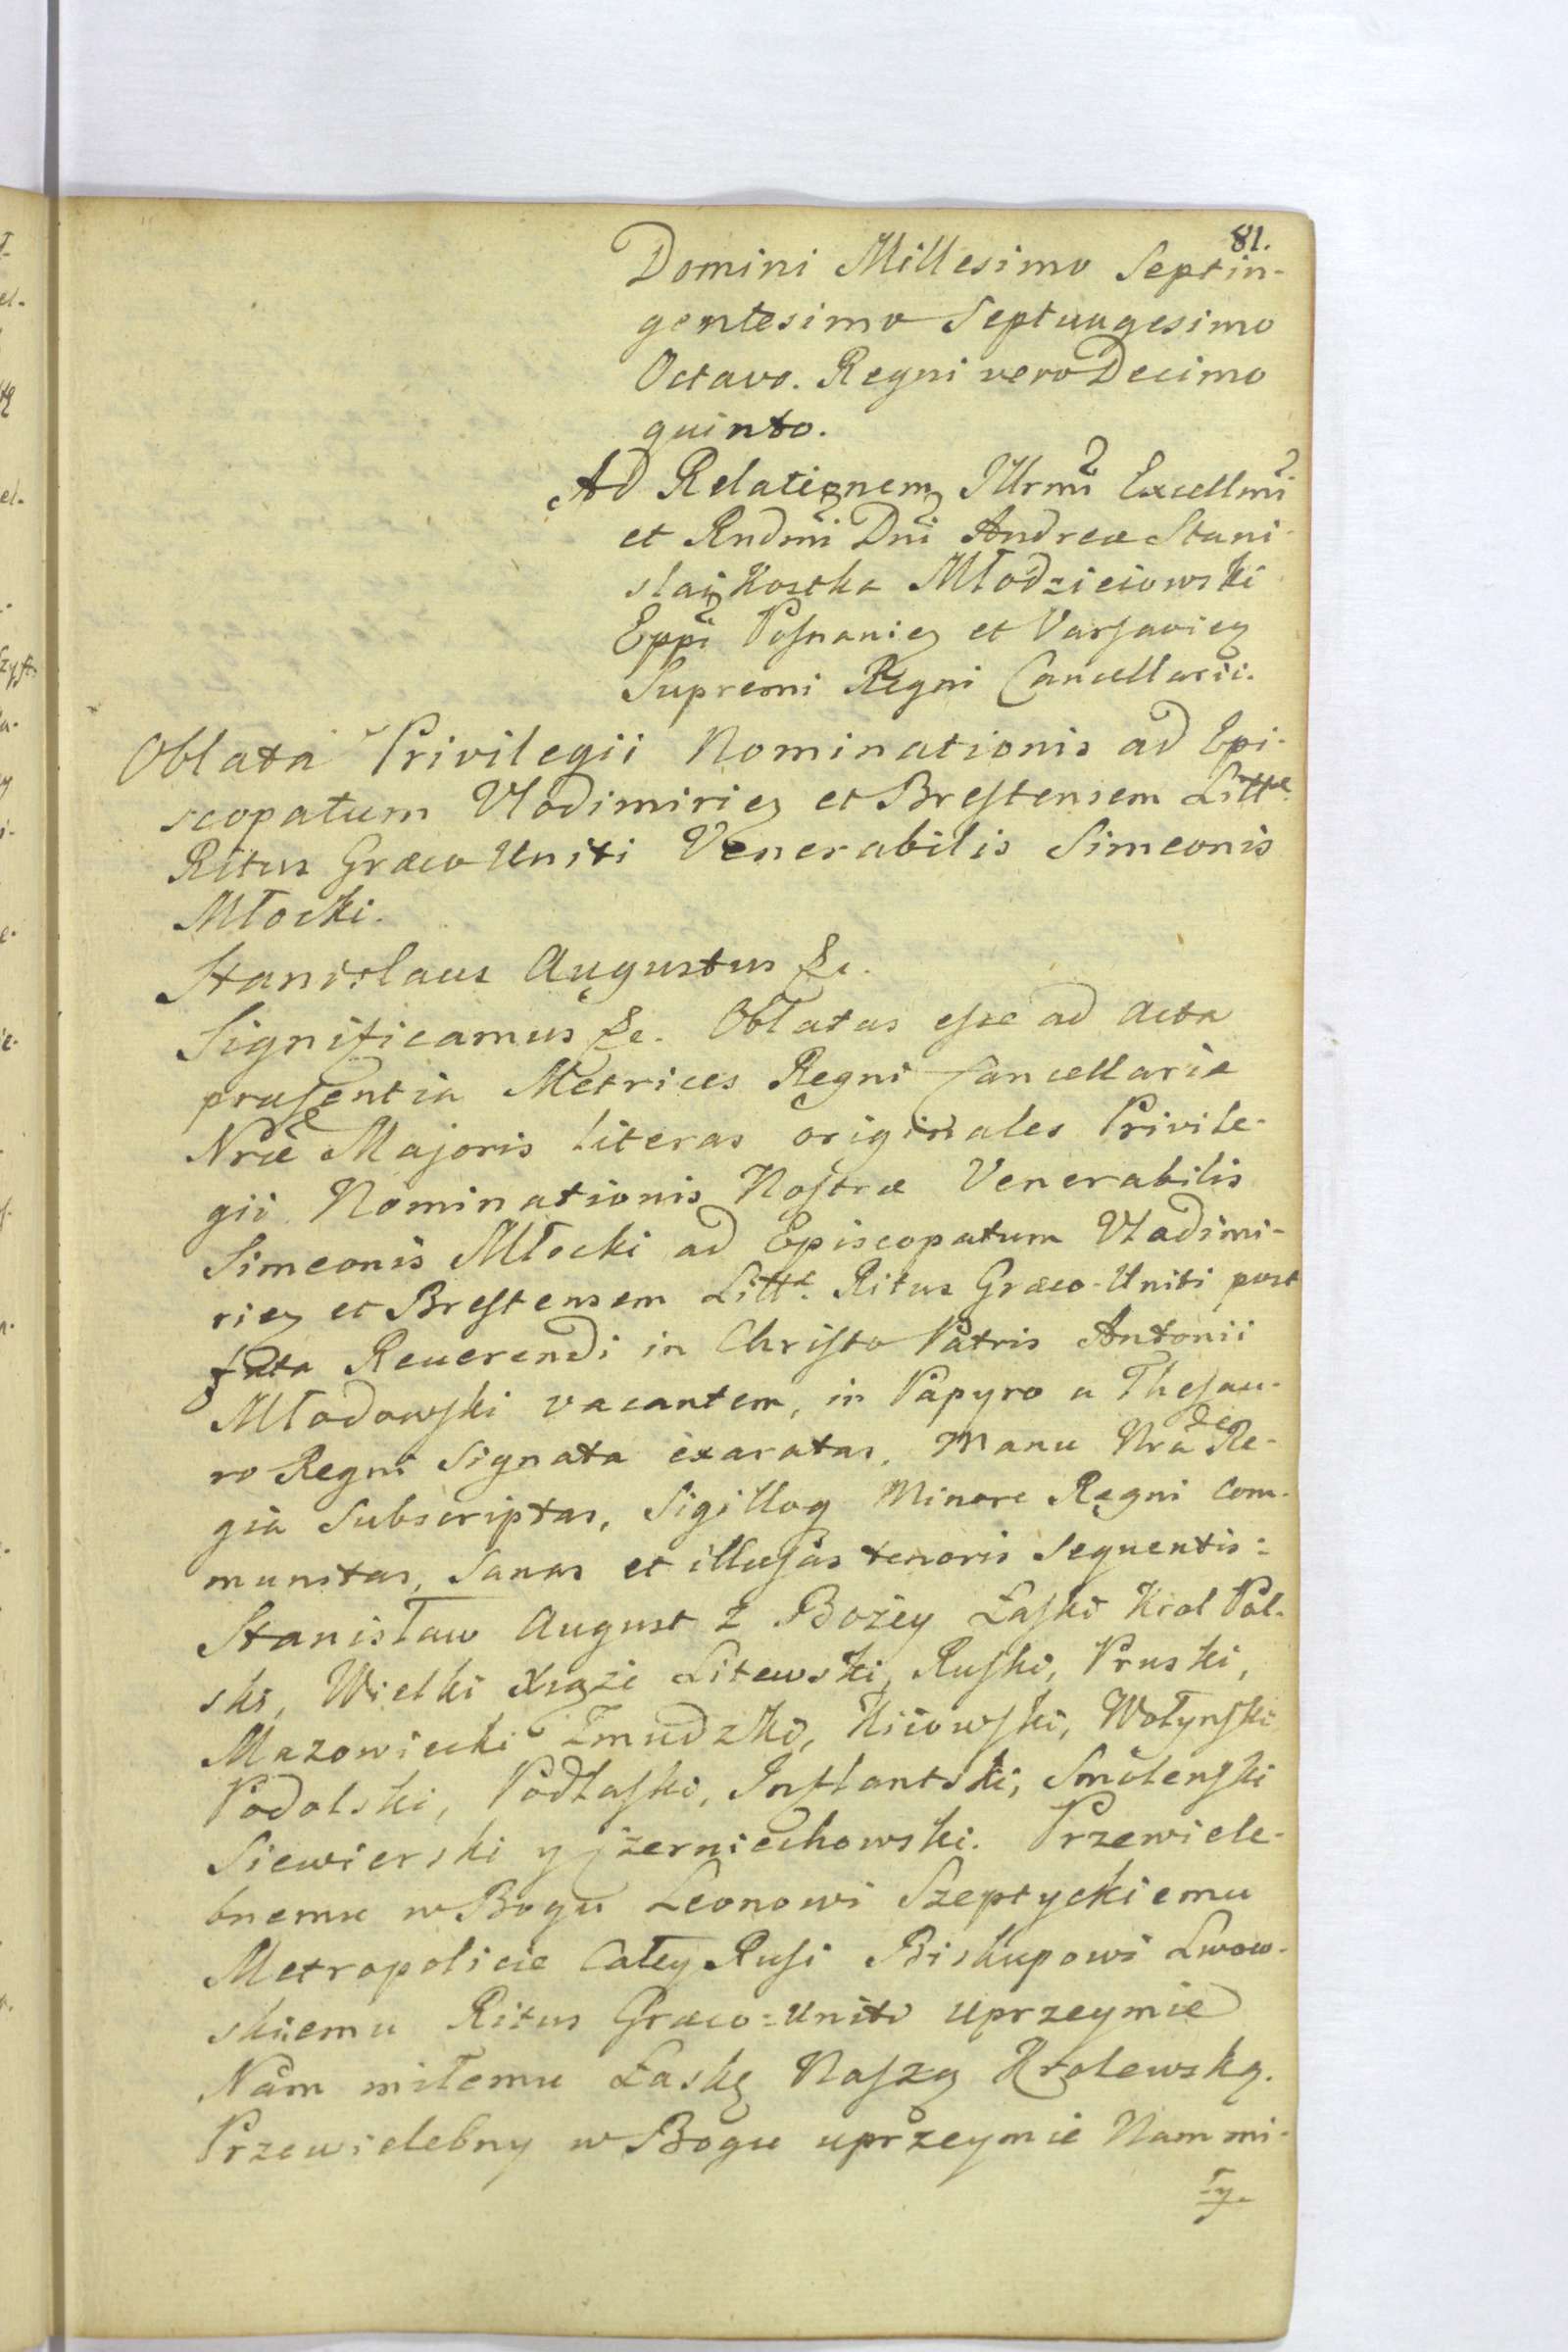 81.
Domini Millesimo Septin-
gentesimo Septuagesimo
Octavo. Regni vero Decimo
quinto.
Ad Relationem Illrmi Excellmi
et Rndmi Dni Andreæ Stani-
slai Kostka Młodzieiowski
Eppi Posnanien et Varsavien
Supremi Regni Cancellarii.
Oblata Privilegii Nominationis ad Epi-
scopatum Vlodimirien et Brestensem Litt.
Ritus Græco Uniti Venerabilis Simeonis
Młocki.
Stanislaus Augustus &c.
Significamus &c. Oblatas esse ad Acta
præsentia Metrices Regni Cancellariæ
Nræ Majoris literas originales Privile-
gii Nominationis Nostræ Venerabilis
Simeonis Młocki ad Episcopatum Vladimi-
rien et Brestensem Litt. Ritus Græco-Uniti post
fata Reuerendi in Christo Patris Antonii
Młodowski vacantem, in Papyro a Thesau-
ro Regni Signata exaratas, Manu Nra Re-
gia Subscriptas, Sigilloq Minore Regni com-
munitas, Sanas et illæsas tenoris sequentis:
Stanisław August z Bożey Łaski Krol Pol-
ski, Wielki Xiąże Litewski, Ruski, Pruski,
Mazowiecki Zmudzki, Kiiowski, Wołynski
Podolski, Podlaski, Inflantski, Smolenski
Siewierski y Czerniechowski. Przewiele-
bnemu w Bogu Leonowi Szeptyckiemu
Metropolicie Całey Rusi Biskupowi Lwow-
skiemu Ritus Græco-Uniti uprzeymie
Nam miłemu Łaskę Naszą Krolewską.
Przewielebny w Bogu uprzeymie Nam mi-
ły.